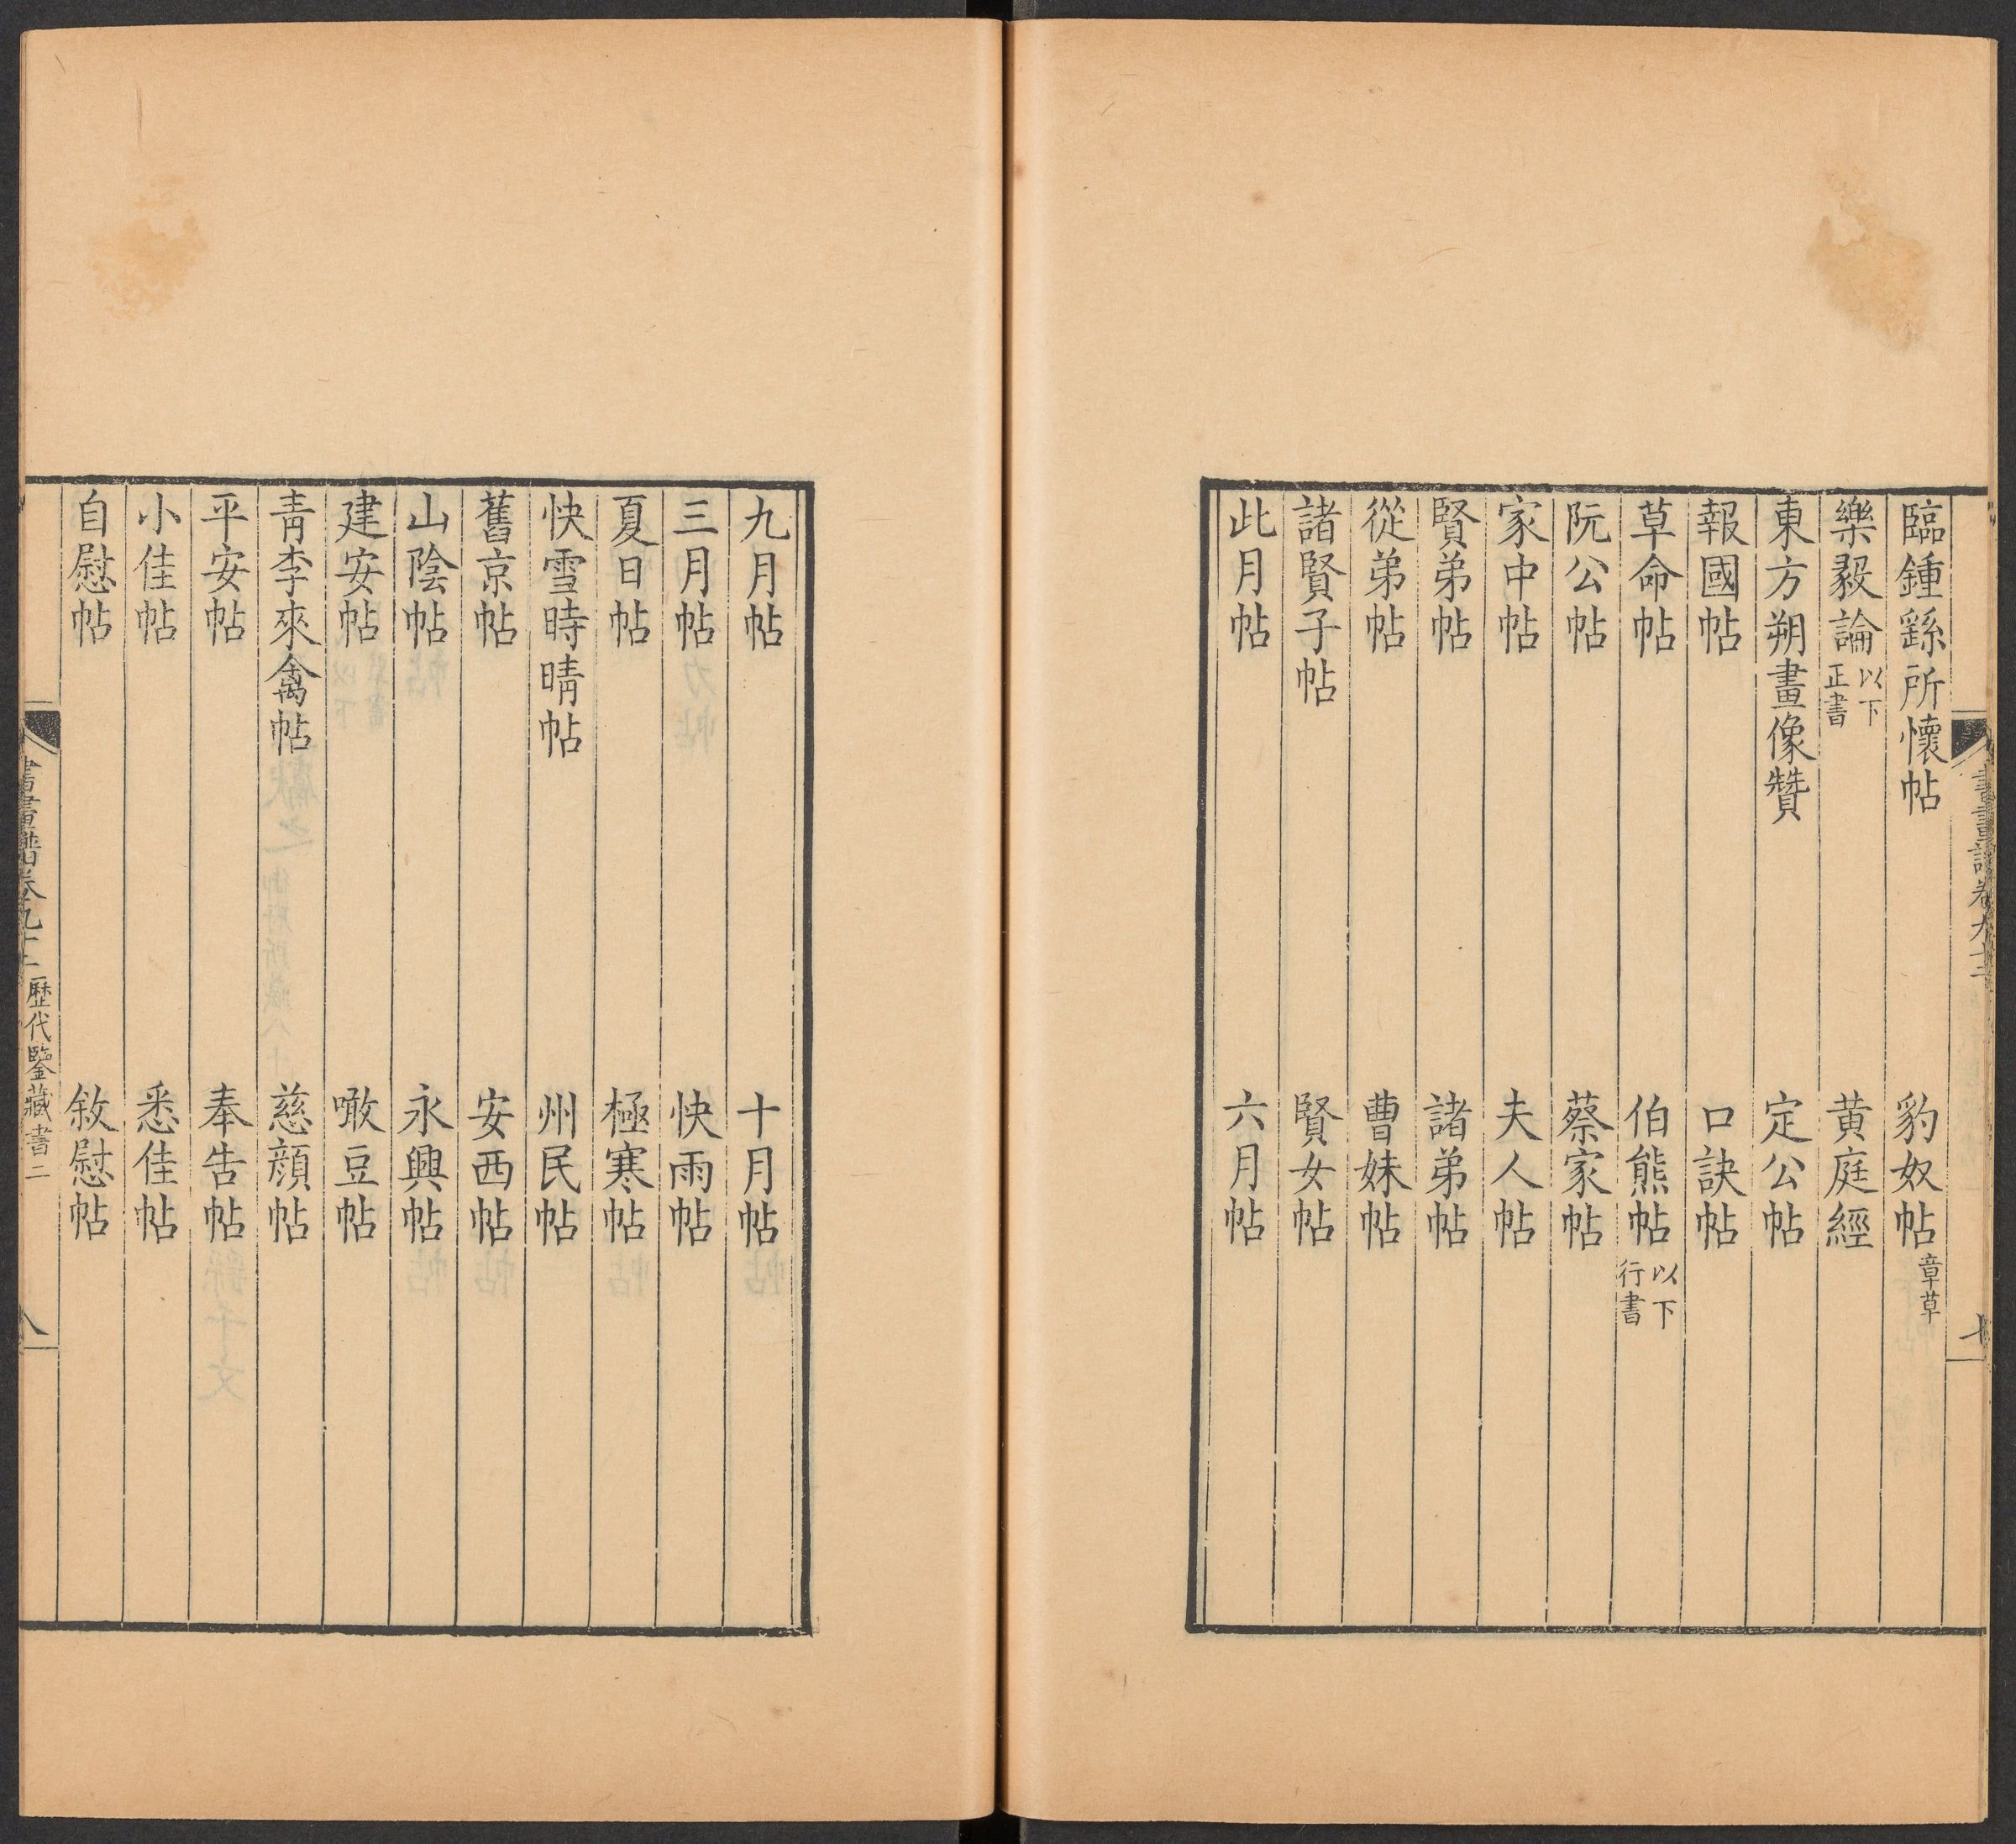 臨鍾繇所懷帖　豹奴帖章草
樂毅論以下正書　黄庭經
東方朔畫像贊　定公帖
報國帖　口訣帖
草命帖　伯熊帖以下行書
阮公帖　蔡家帖
家中帖　夫人帖
賢弟帖　諸弟帖
從弟帖　曹妹帖
諸賢子帖　賢女帖
此月帖　六月帖
九月帖　十月帖
三月帖　快雨帖
夏日帖　極寒帖
快雪時晴帖　州民帖
舊京帖　安西帖
山陰帖　永興帖
建安帖　噉豆帖
青李來禽帖　慈顔帖
平安帖　奉告帖
小佳帖　悉佳帖
自慰帖　敘慰帖
歷代鑒藏書二
八